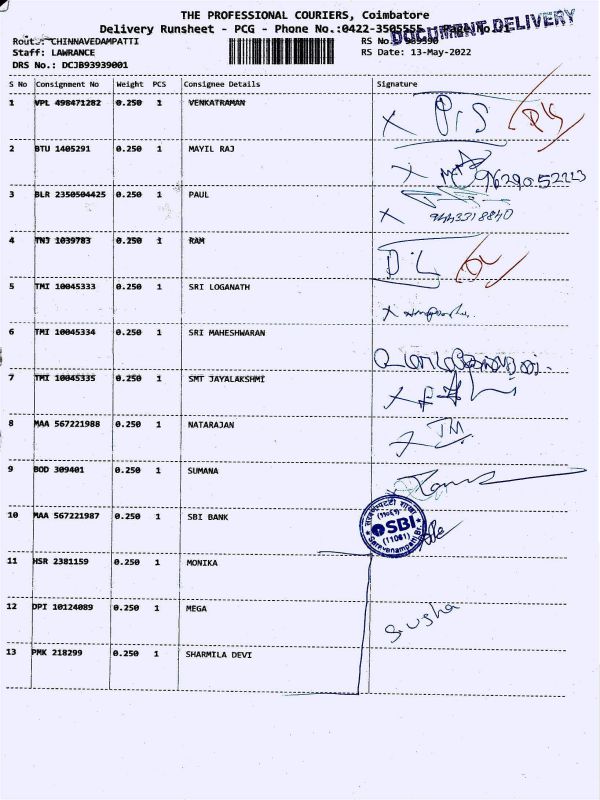 THE PROFESSIONAL COURIERS, Coimbatore
Delivery Runsheet - PCG - Phone No.:0422-3505555
DOCUMENT DELIVERY
Route: CHINNAVEDAMPATTI
RS No.:
Staff: LAWRANCE
RS Date: 13-May-2022
DRS No.: DCJB93939001
S No Consignment No Weight PCS Consignee Details Signature
1 VPL 498471282 0.250 1 VENKATRAMAN
2 BTU 1405291 0.250 1 MAYIL RAJ
9629052223
3 BLR 2350504425 0.250 1 PAUL
9443318840
4 TNJ 1039783 0.250 1 RAM
5 TMI 10045333 0.250 1 SRI LOGANATH
6 TMI 10045334 0.250 1 SRI MAHESHWARAN
7 TMI 10045335 0.250 1 SMT JAYALAKSHMI
8 MAA 567221988 0.250 1 NATARAJAN
9 BOD 309401 0.250 1 SUMANA
10 MAA 567221987 0.250 1 SBI BANK
SBI
(11061)
11 HSR 2381159 0.250 1 MONIKA
12 DPI 10124089 0.250 1 MEGA
Susha
13 PMK 218299 0.250 1 SHARMILA DEVI